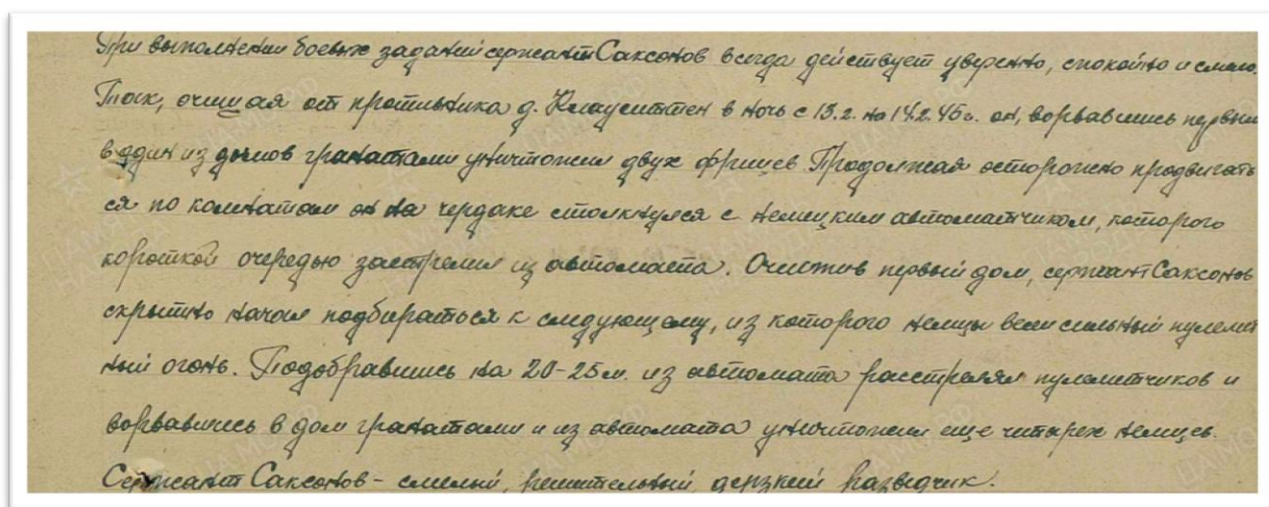 При выполнении боевых заданий сержант Саксонов всегда действует уверенно, спокойно и смело.
Так, очищая от противника д. Клауситтен в ночь с 13.2. на 14.2.45г. он, ворвавшись первым
в один из домов гранатами уничтожил двух фрицев. Продолжая осторожно продвигать
ся по комнатам он на чердаке столкнулся с немецким автоматчиком, которого
короткой очередью застрелил из автомата. Очистив первый дом, сержант Саксонов
скрытно начал подбираться к следующему, из которого немцы вели сильный пулемет
ный огонь. Подобравшись на 20-25м. из автомата расстрелял пулеметчиков и
ворвавшись в дом гранатами и из автомата уничтожил еще четырех немцев.
Сержант Саксонов - смелый, решительный, дерзкий разведчик.